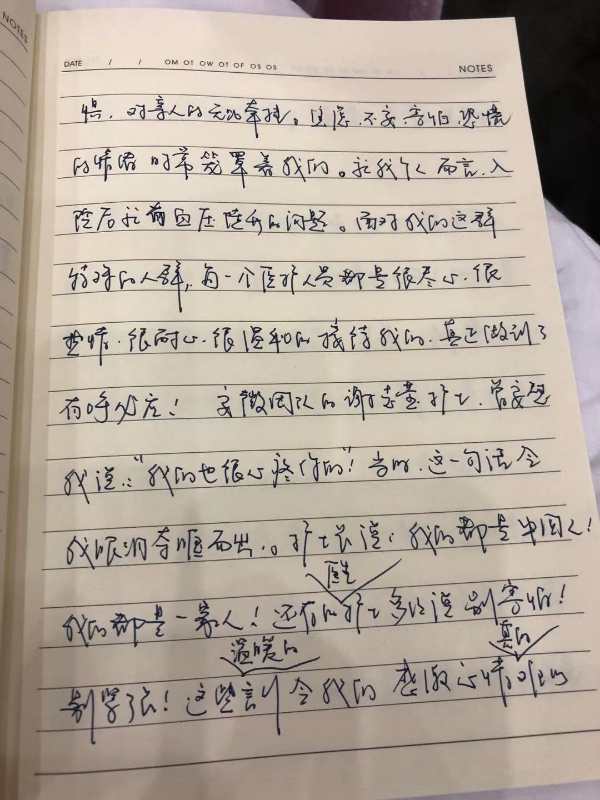 NOTES
DATE / / OM OT OW OT OF OS OS NOTES
惧，对亲人的无比牵挂。焦虑、不安、害怕、恐慌
的情绪时常笼罩着我们。就我个人而言，入
院后就有血压升高的问题。面对我们这群
特殊的人群，每一个医护人员都是很尽心、很
热情、很耐心、很温和的接待我们，真正做到了
有呼必应！ 安徽团队的谢 护士，曾安慰
我说："我们也很心疼你们"！当时，这一句话令
我眼泪夺眶而出。护士长说：我们都是中国人！
医生
我们都是一家人！还有的护士多次说别害怕！
温暖的 真的
别紧张！这些言行令我们感激心情